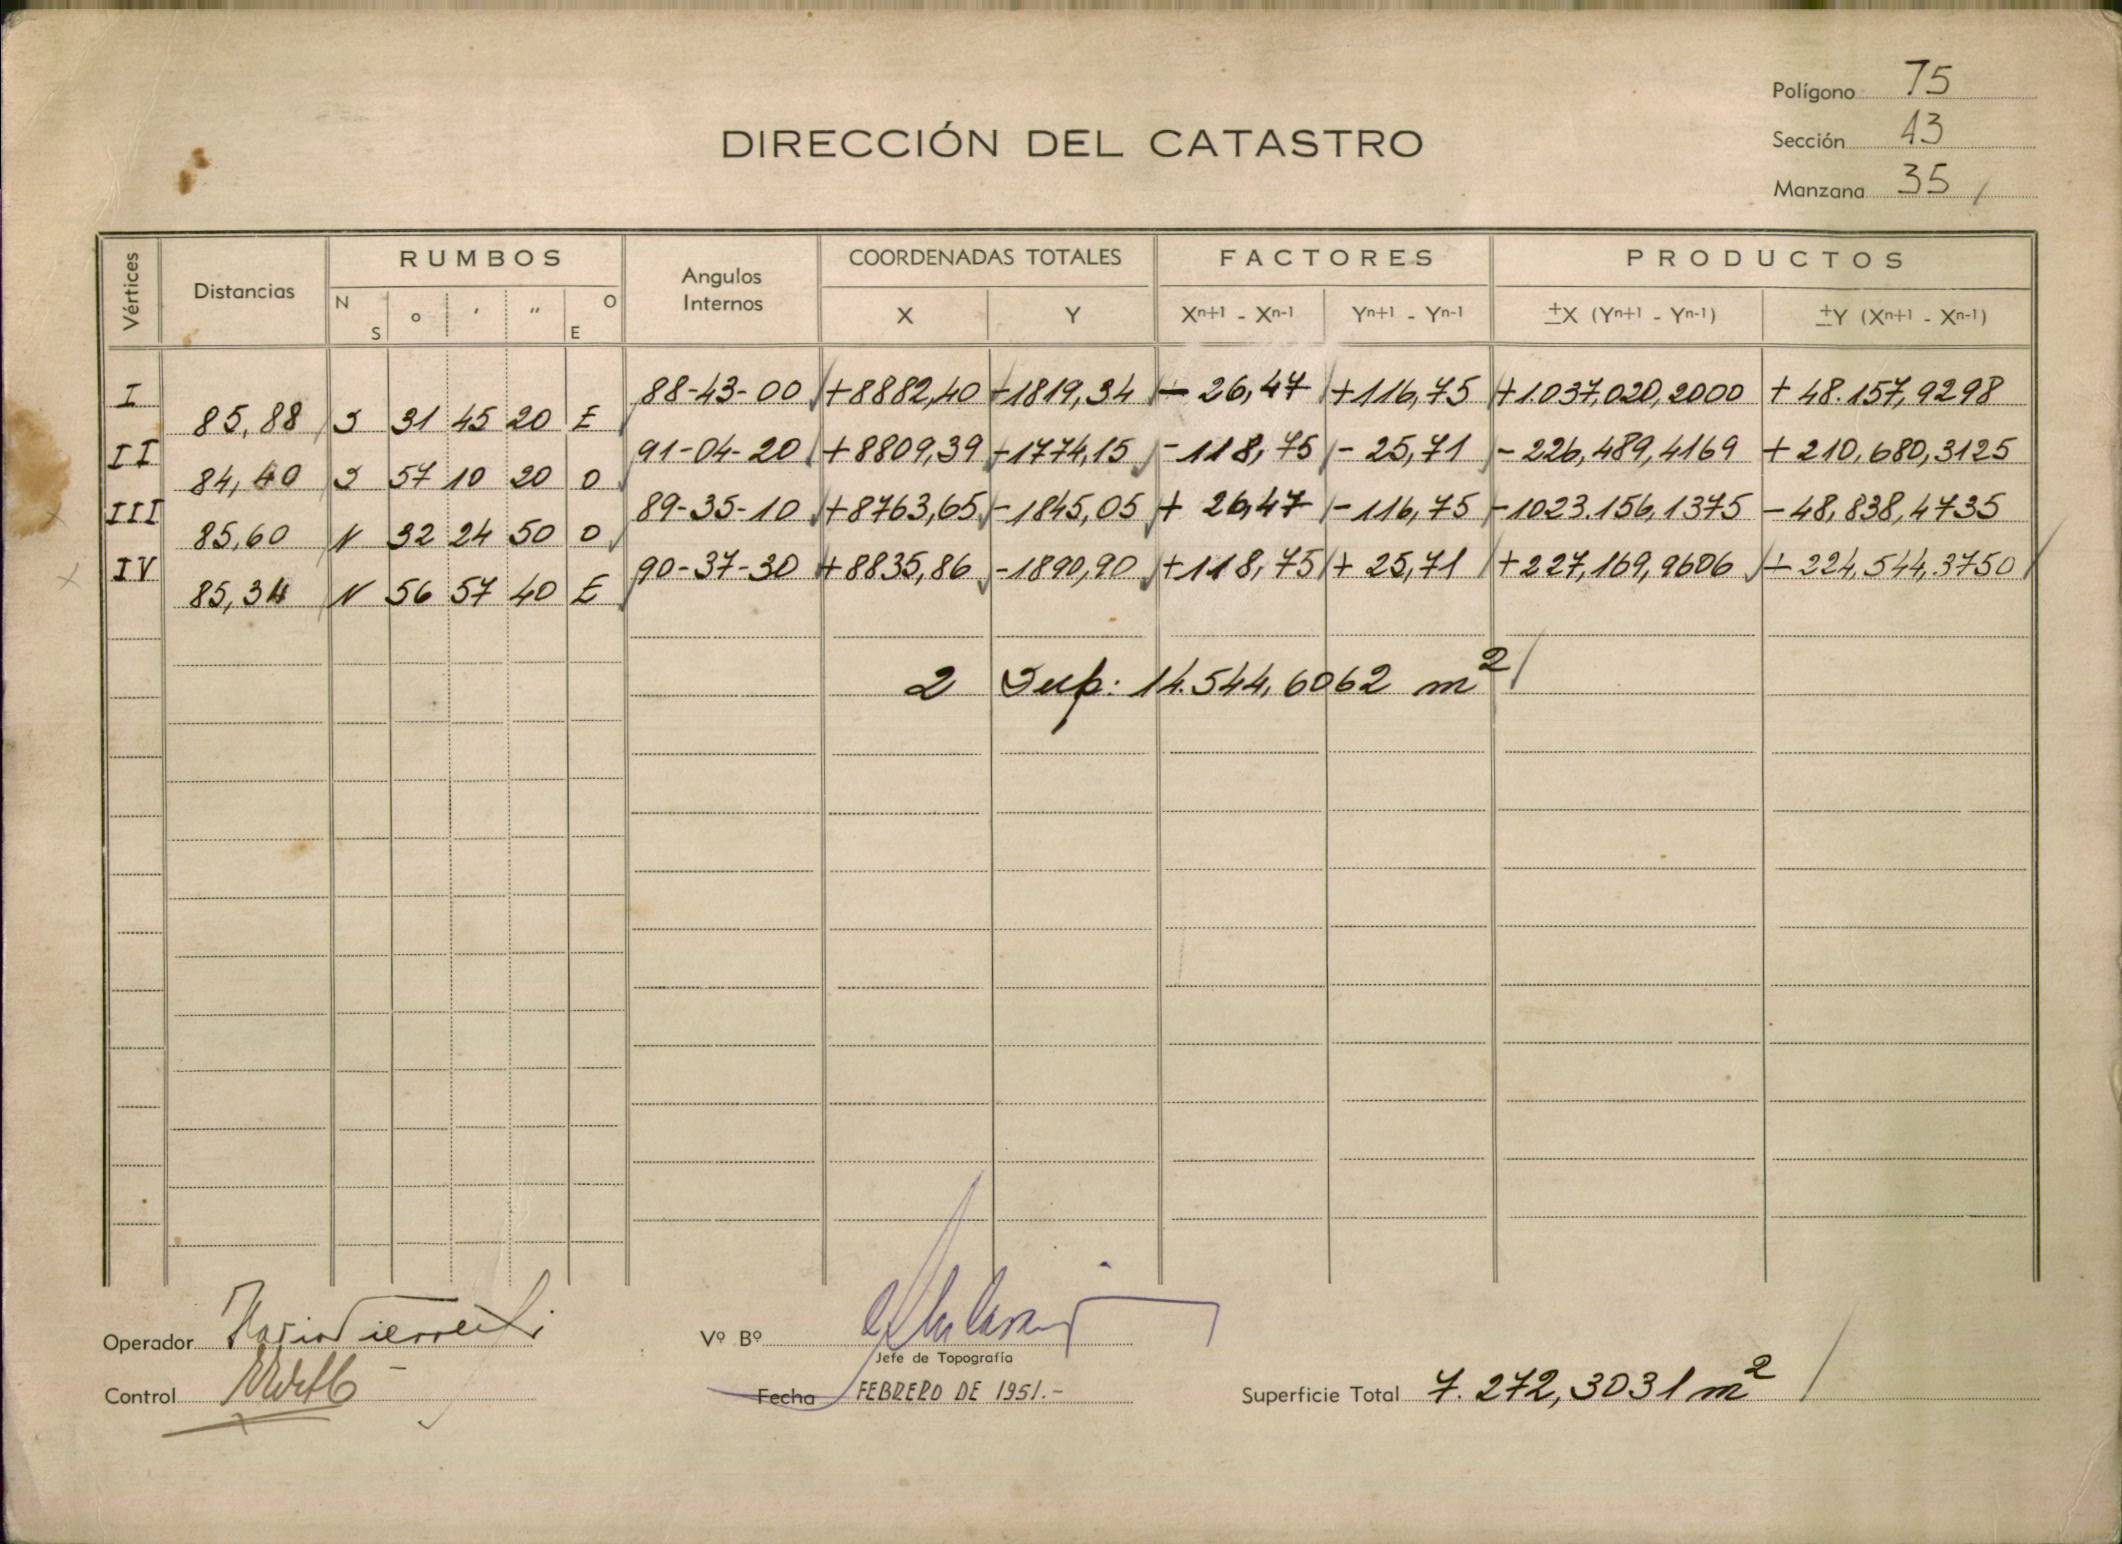 Polígono 75
DIRECCIÓN DEL CATASTRO
Sección 13
Manzana 35
Vértices Distancias RUMBOS Angulos Internos COORDENADAS TOTALES FACTORES PRODUCTOS
N S o ' " O E X Y Xn+1 - Xn-1 Yn+1 - Yn-1 ±X (Yn+1 - Yn-1) ±Y (Xn+1 - Xn-1)
I 88-43-00 +8882,40 -1819,34 - 26,47 +116,75 +1.037,020,2000 + 48.157,9298
85,88 S 31 45 20 E
II 91-04-20 +8809,39 -1774,15 -118,75 - 25,71 - 226,489,4169 + 210.680,3125
84,40 S 57 10 20 O
III 89-35-10 +8763,65 -1845,05 + 26,47 -116,75 -1023.156,1375 - 48,838,4735
85,60 N 32 24 50 O
IV 90-37-30 +8835,86 -1890,90 +118,75 + 25,71 +227,169,9606 - 224,544,3750
85,34 N 56 57 40 E
2 Sup: 14.544,6062 m2
Operador
Vº Bº
Jefe de Topografía
Control
Fecha FEBRERO DE 1951.-
Superficie Total 7.272,3031 m2